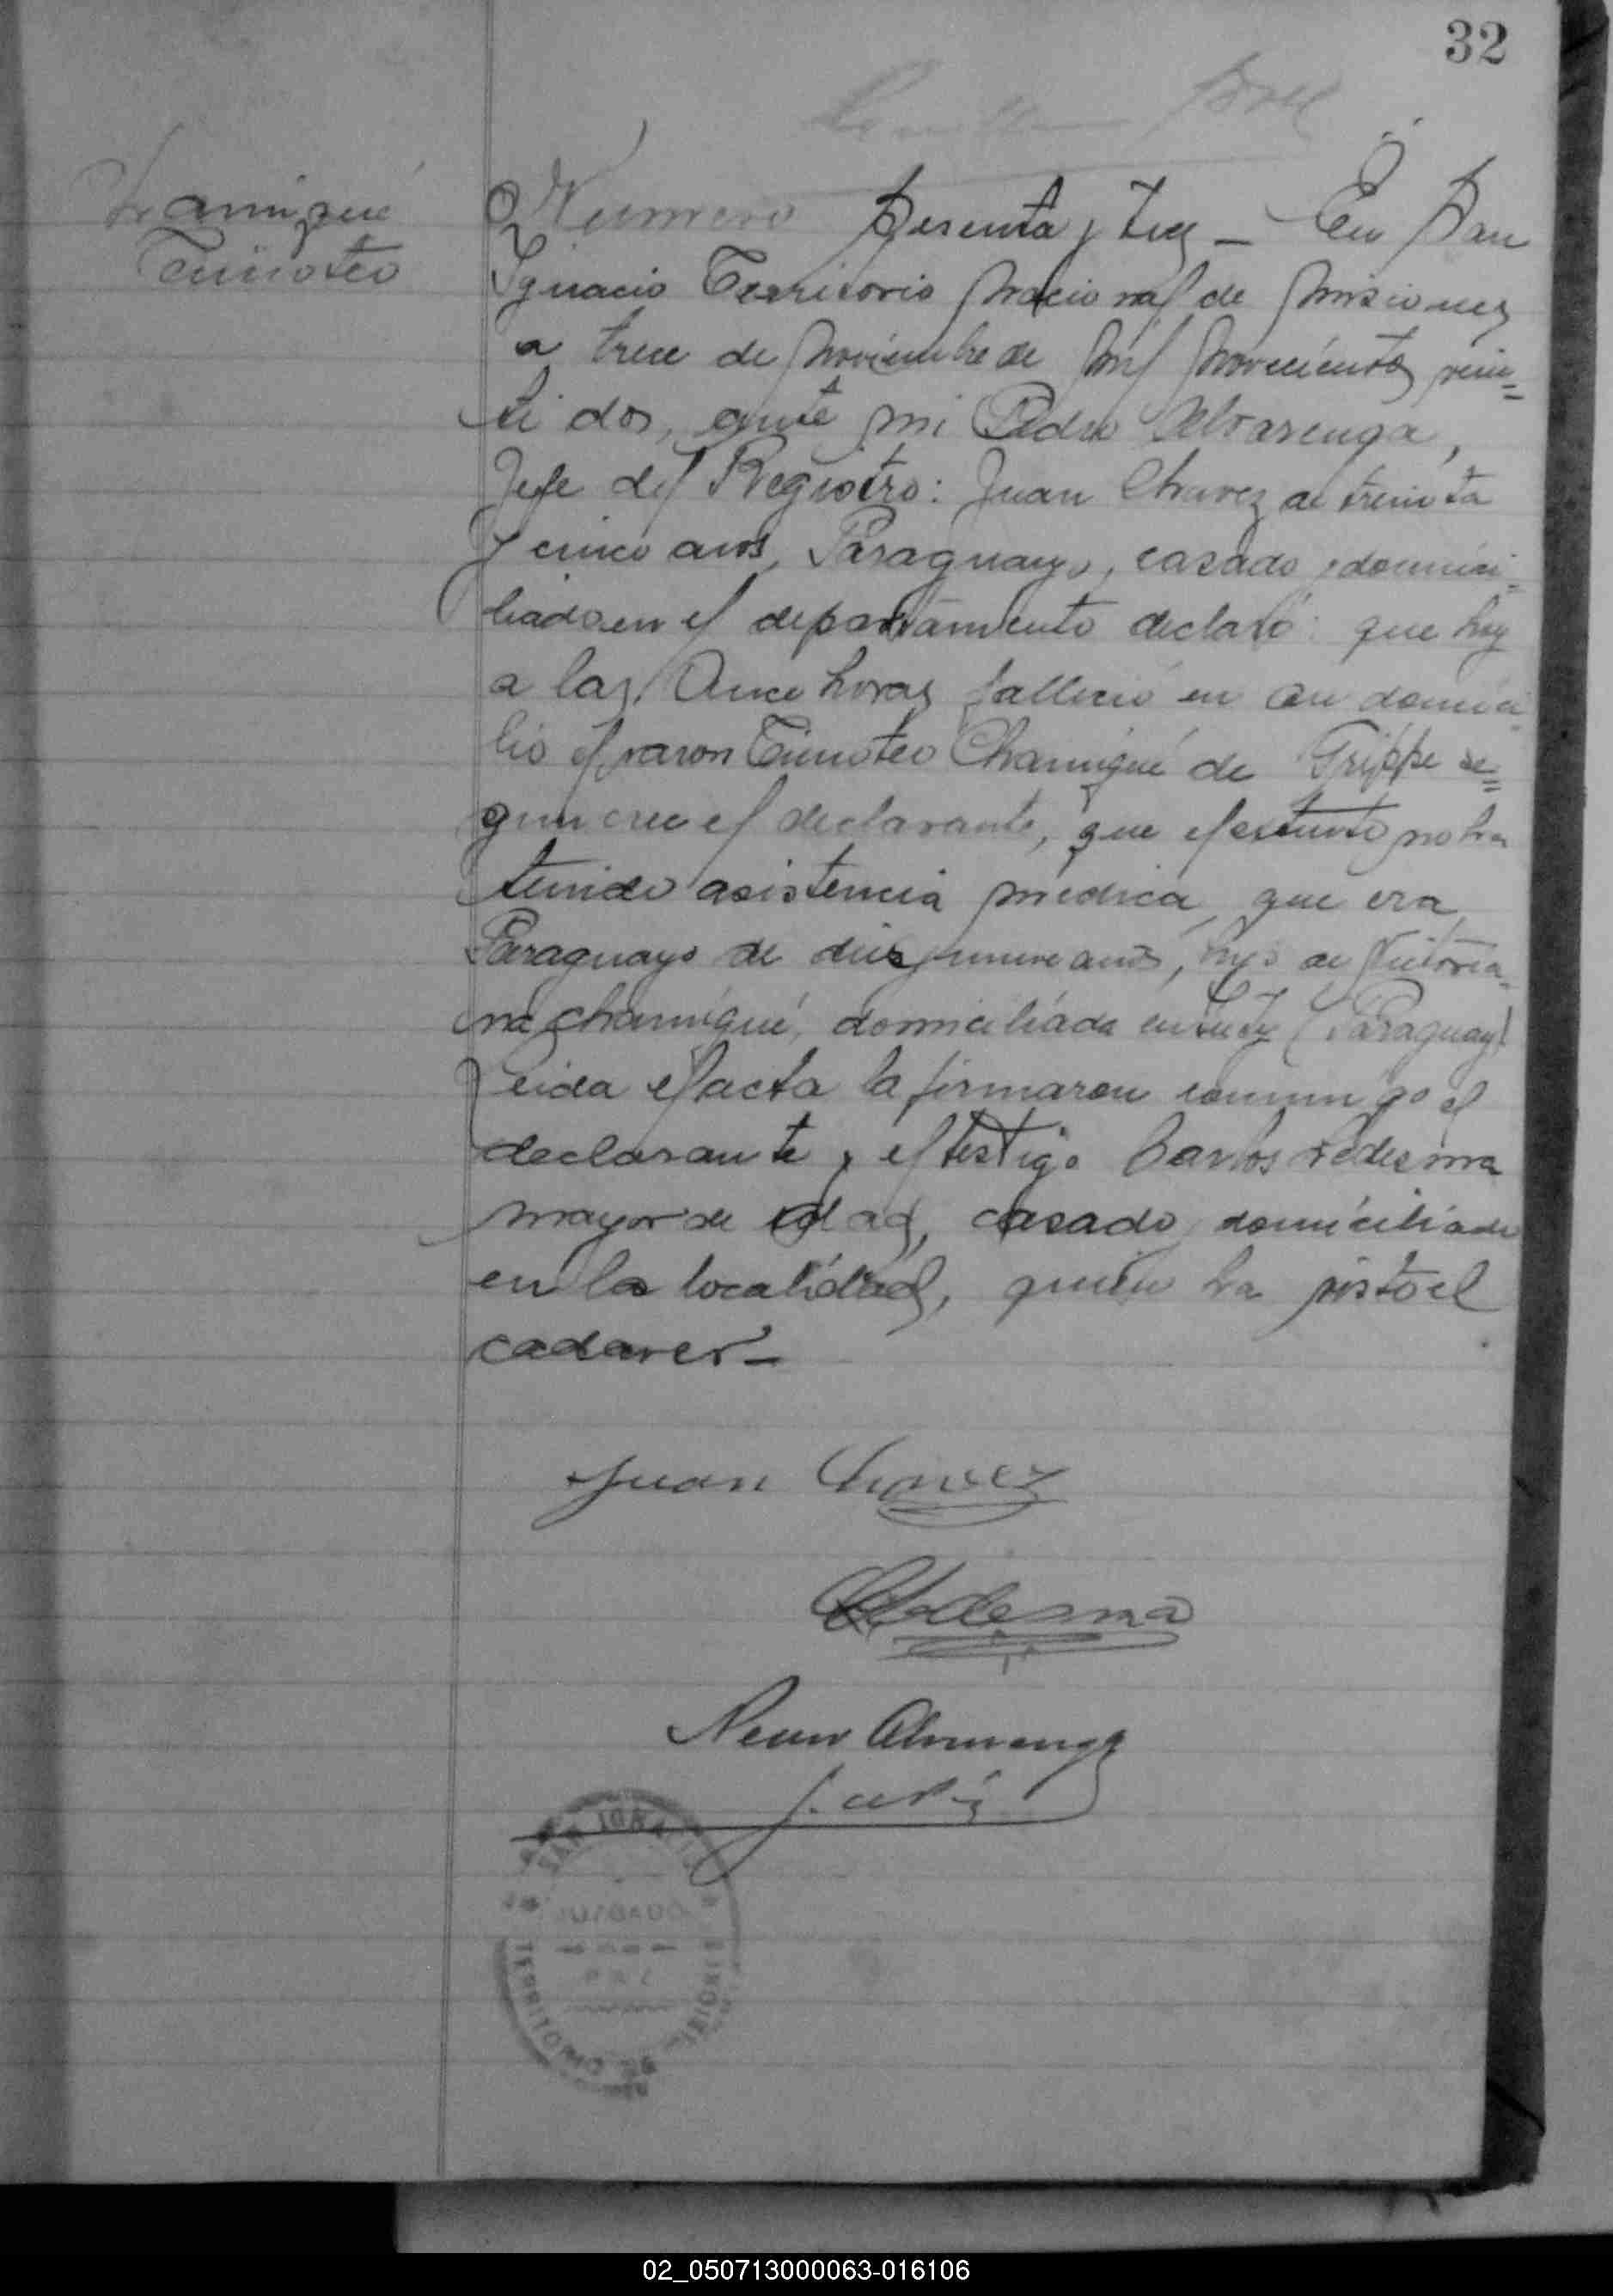 32
Chamigué
Timoteo
Numero Sesenta y tres — En San
Ignacio Territorio Nacional de Misiones
a trece de Noviembre de Mil Novecientos vein=
ti dos, ante mi Pedro Alvarenga,
Jefe del Registro: Juan Chavez de treinta
y cinco años, Paraguayo, casado, domici-
liado en el departamento declaró: que hoy
a las Once horas fallecio en su domici-
lio el varon Timoteo Chamigué de Grippe se=
gun cree el declarante, que el extinto no ha
tenido asistencia medica, que era
Paraguayo de diez y nueve años, hijo de Victoria-
na Chamigué, domiciliada en (Paraguay)
Leida el acta la firmaron conmigo el
declarante y el testigo Carlos Ledesma
mayor de edad, casado, domiciliado
en la localidad, quien ha visto el
cadaver —
Juan Chavez
CLedesma
Alvarenga
SAN IGNACIO
JUZGADO
DE
PAZ
TERRITORIO DE MISIONES
02_050713000063-016106